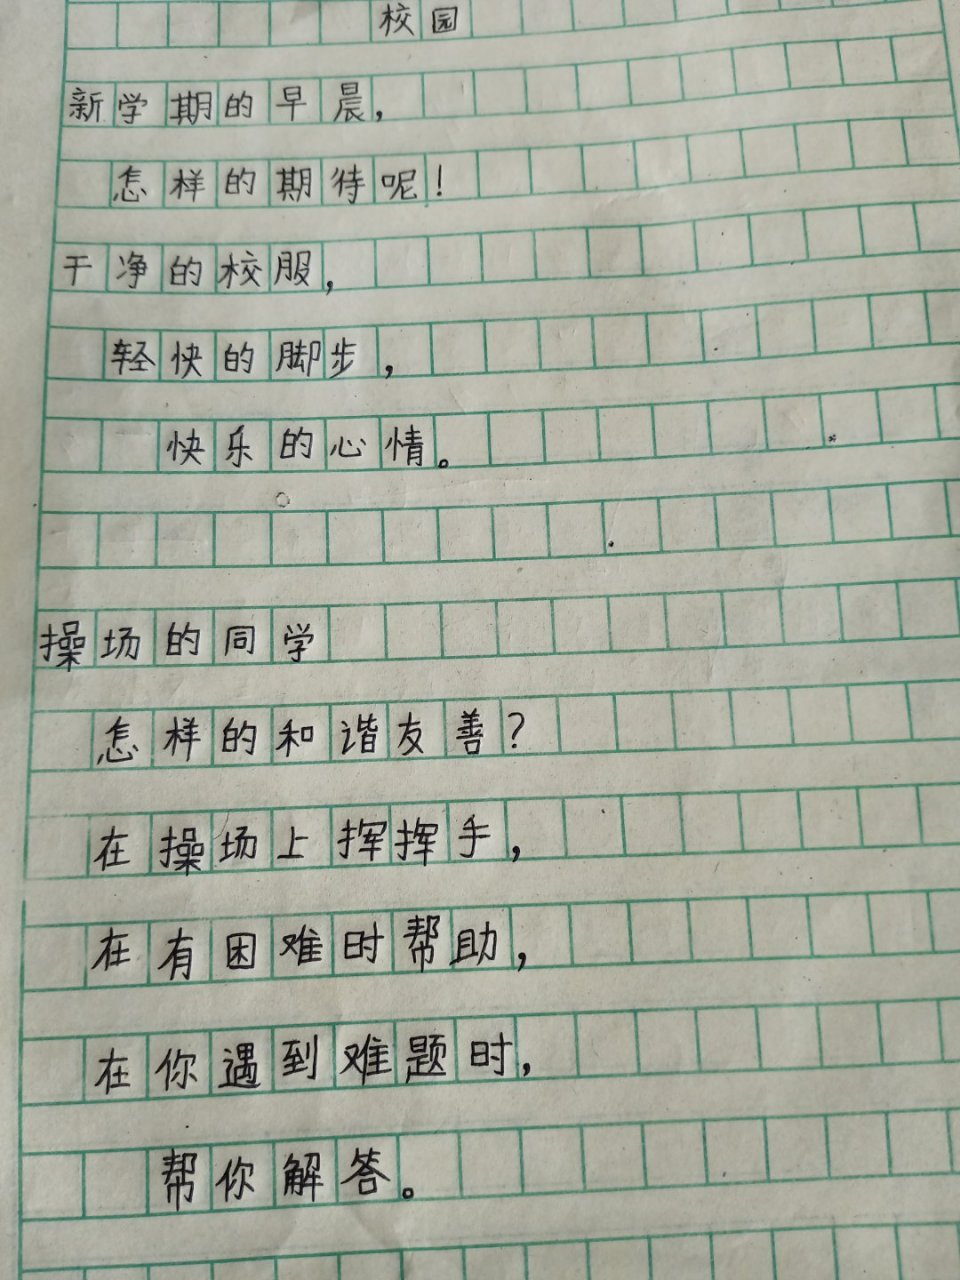 校园
新学期的早晨，
怎样的期待呢！
干净的校服，
轻快的脚步，
快乐的心情。
操场的同学
怎样的和谐友善？
在操场上挥挥手，
在有困难时帮助，
在你遇到难题时，
帮你解答。